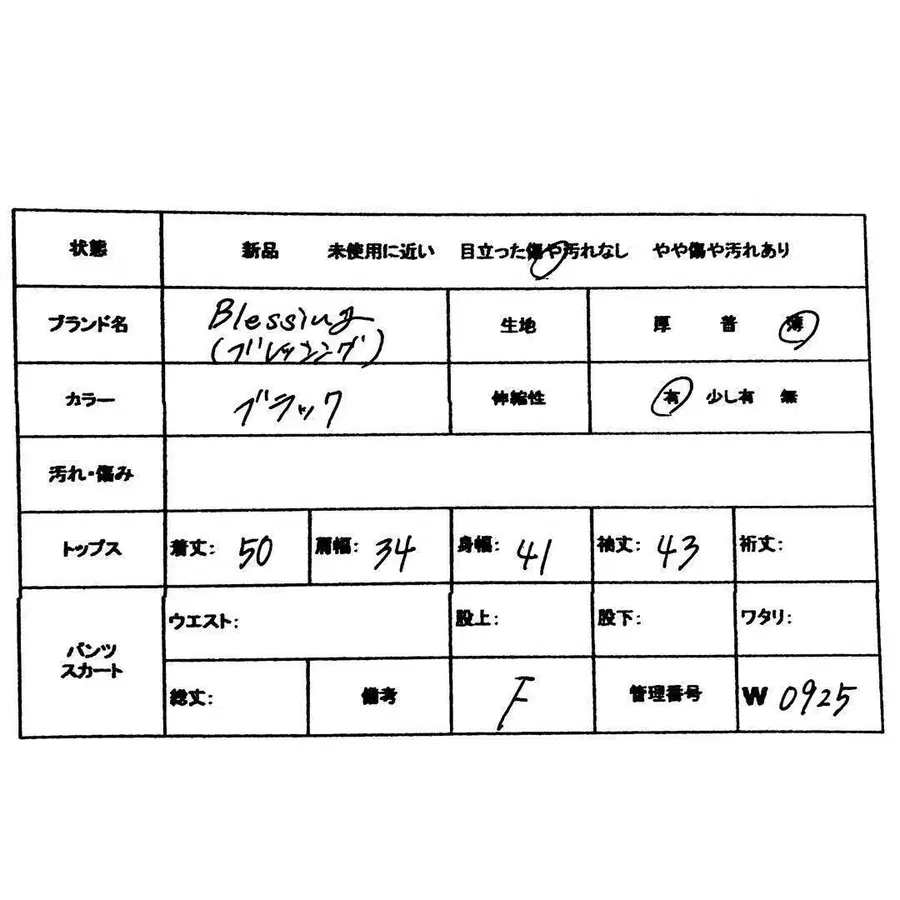 状態 新品 未使用に近い 目立った傷や汚れなし やや傷や汚れあり
ブランド名 Blessing 生地 厚 普 薄
(ブレッシング)
カラー ブラック 伸縮性 有 少し有 無
汚れ・傷み
トップス 着丈: 50 肩幅: 34 身幅: 41 袖丈: 43 裄丈:
パンツ
スカート
ウエスト: 股上: 股下: ワタリ:
総丈: 備考 F 管理番号 W 0925